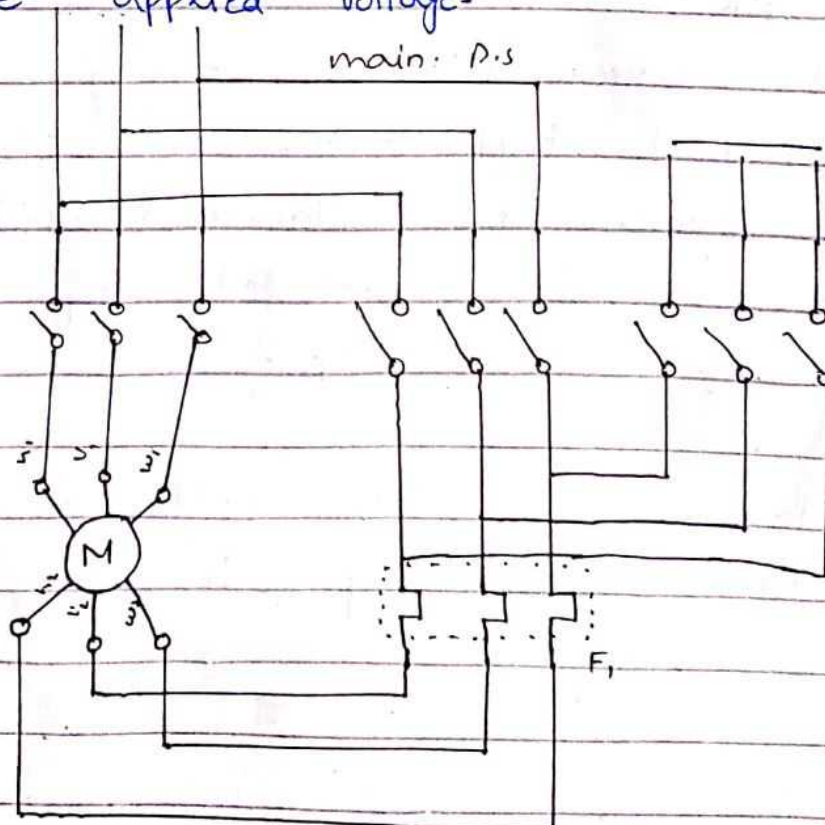 applied voltage-
main. D.S
u₁ v₁ w₁
M
u₂ v₂ w₂
F₁